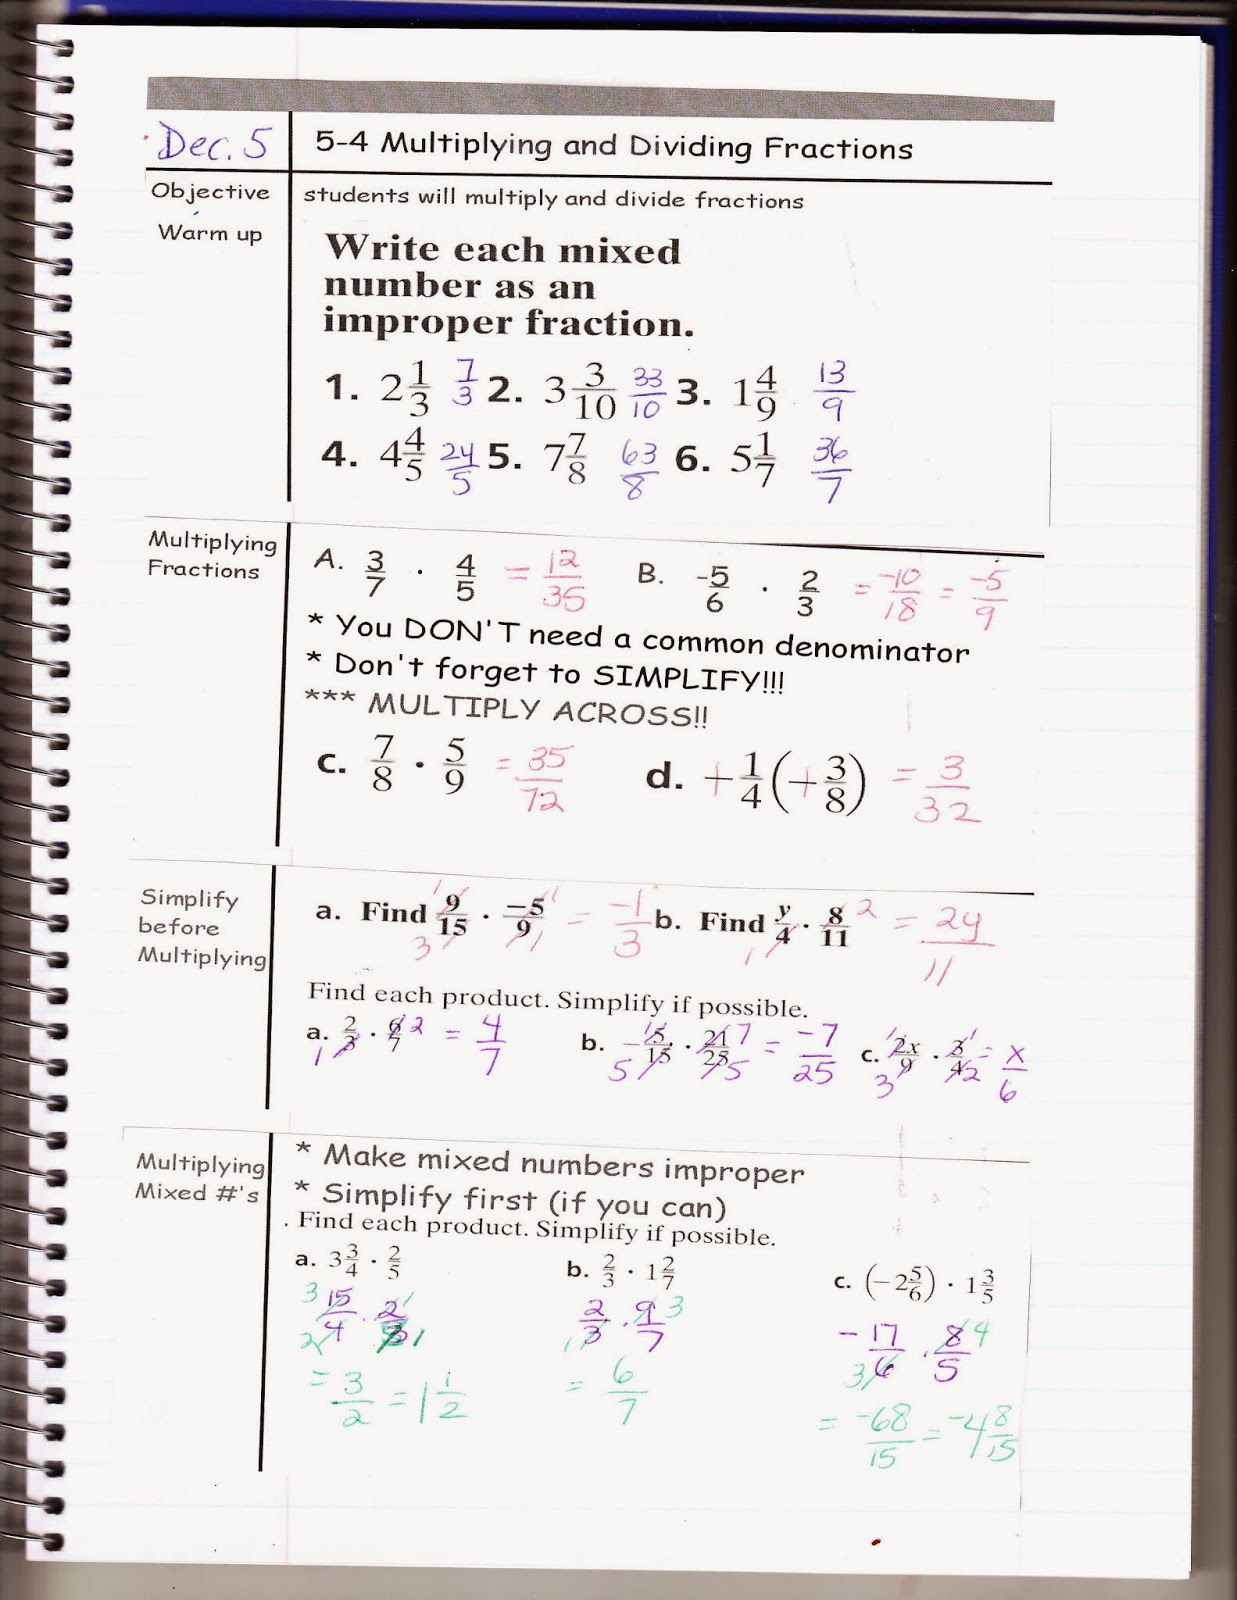 Dec. 5 5-4 Multiplying and Dividing Fractions
Objective students will multiply and divide fractions
Warm up
Write each mixed
number as an
improper fraction.
1. 2 1/3 7/3 2. 3 3/10 33/10 3. 1 4/9 13/9
4. 4 4/5 24/5 5. 7 7/8 63/8 6. 5 1/7 36/7
Multiplying
Fractions
A. 3/7 · 4/5 = 12/35 B. -5/6 · 2/3 = -10/18 = -5/9
* You DON'T need a common denominator
* Don't forget to SIMPLIFY!!!
*** MULTIPLY ACROSS!!
c. 7/8 · 5/9 = 35/72 d. +1/4(+3/8) = 3/32
Simplify
before
Multiplying
a. Find 9/15 · -5/9 = -1/3 b. Find y/4 · 8/11 = 2y/11
1 3 1 1 1 2
Find each product. Simplify if possible.
a. 2/3 · 6/7 = 4/7 b. -5/15 · 21/25 = -7/25 c. 2x/9 · 3/4 = x/6
1 2 1 5 7 5 1 3 1 2
Multiplying
Mixed #'s
* Make mixed numbers improper
* Simplify first (if you can)
. Find each product. Simplify if possible.
a. 3 3/4 · 2/5 b. 2/3 · 1 2/7 c. (-2 5/6) · 1 3/5
3 15/4 2 · 2/5 1 1 2/3 1 · 9/7 3 -17/6 3 · 8/5 4
= 3/2 = 1 1/2 = 6/7 = -68/15 = -4 8/15